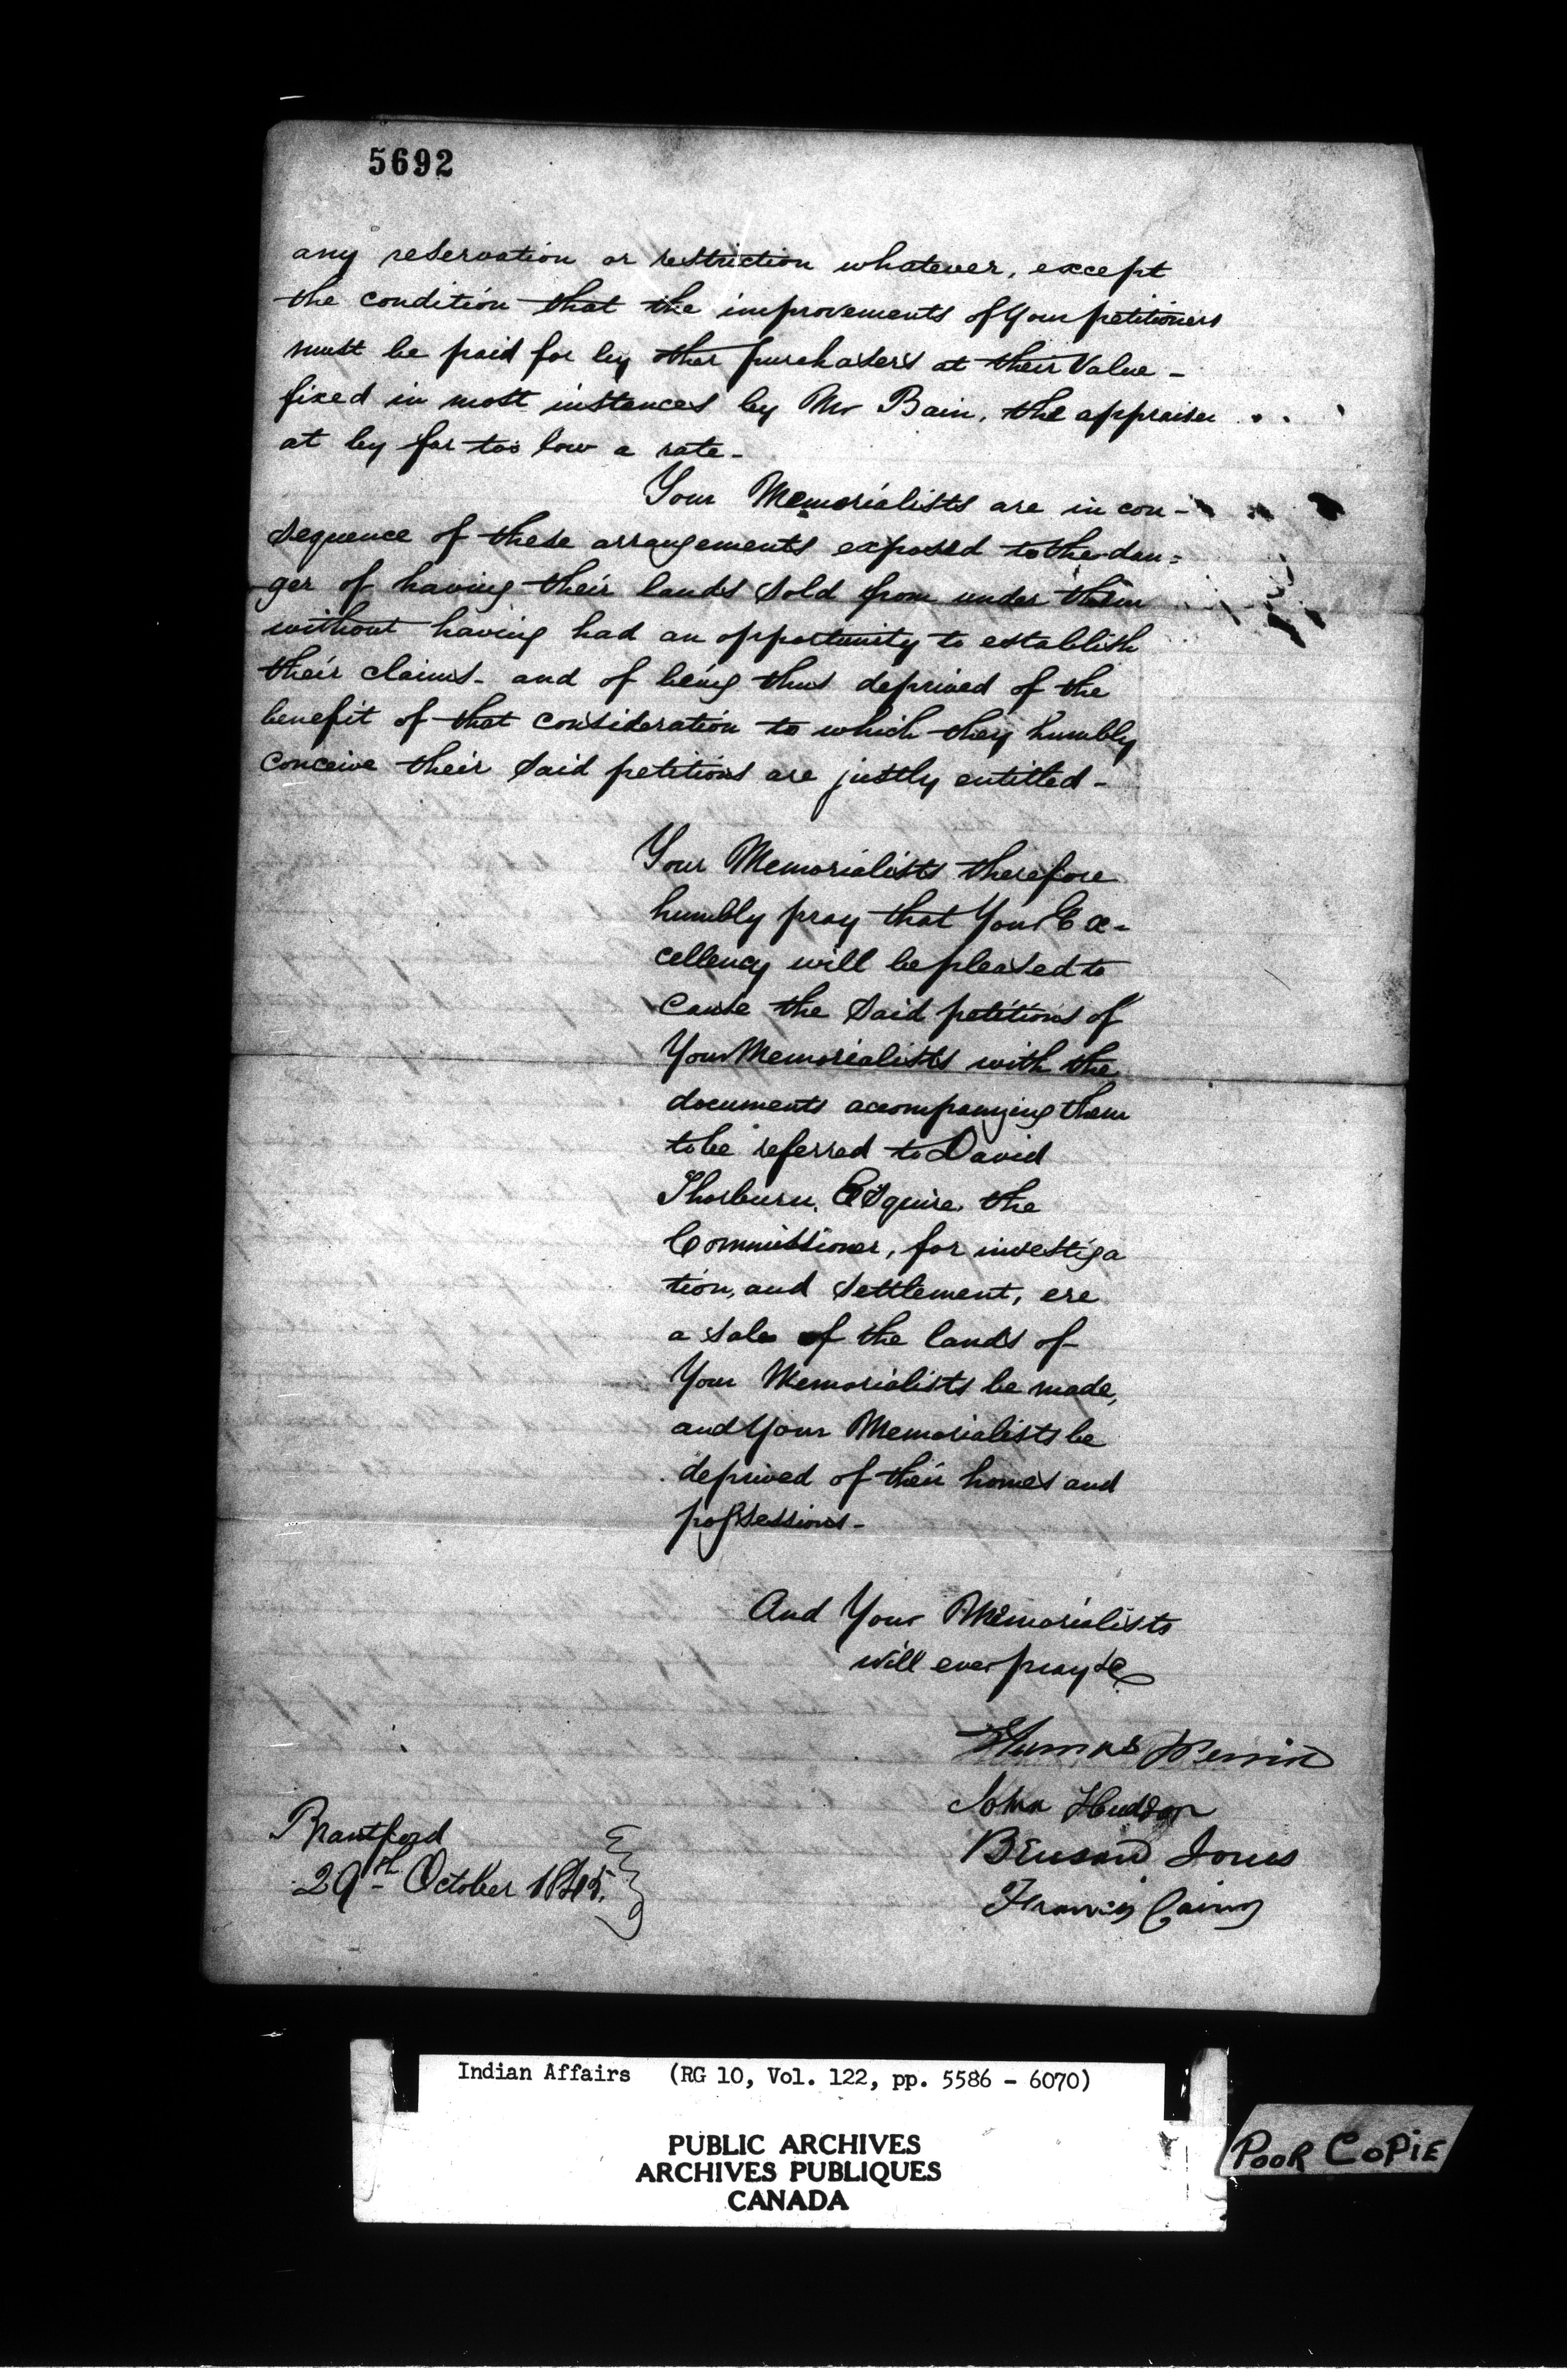 5692
any reservation or restriction whatever, except
the condition that the improvements of Your petitioners
must be paid for by other purchasers at their Value -
fixed in most instances by Mr Bain, the appraiser
at by far too low a rate -
Your Memorialists are in con-
sequence of these arrangements exposed to the dan=
ger of having their lands sold from under them
without having had an opportunity to establish
their claims - and of being thus deprived of the
benefit of that consideration to which they humbly
conceive their said petitions are justly entitled -
Your Memorialists therefore
humbly pray that Your Ex-
cellency will be pleased to
cause the said petitions of
Your Memorialists with the
documents accompanying them
to be referred to David
Thorburn, Esquire, the
Commissioner, for investiga
tion, and settlement, ere
a sale of the lands of
Your Memorialists be made,
and Your Memorialists be
deprived of their homes and
possessions -
And Your Memorialists
will ever pray &c
Thomas Perrin
John Hudson
Brantford
Benson Jones
29th October 1845.
Francis Cairns
Indian Affairs (RG 10, Vol. 122, pp. 5586 - 6070)
PUBLIC ARCHIVES
ARCHIVES PUBLIQUES
CANADA
POOR COPIE